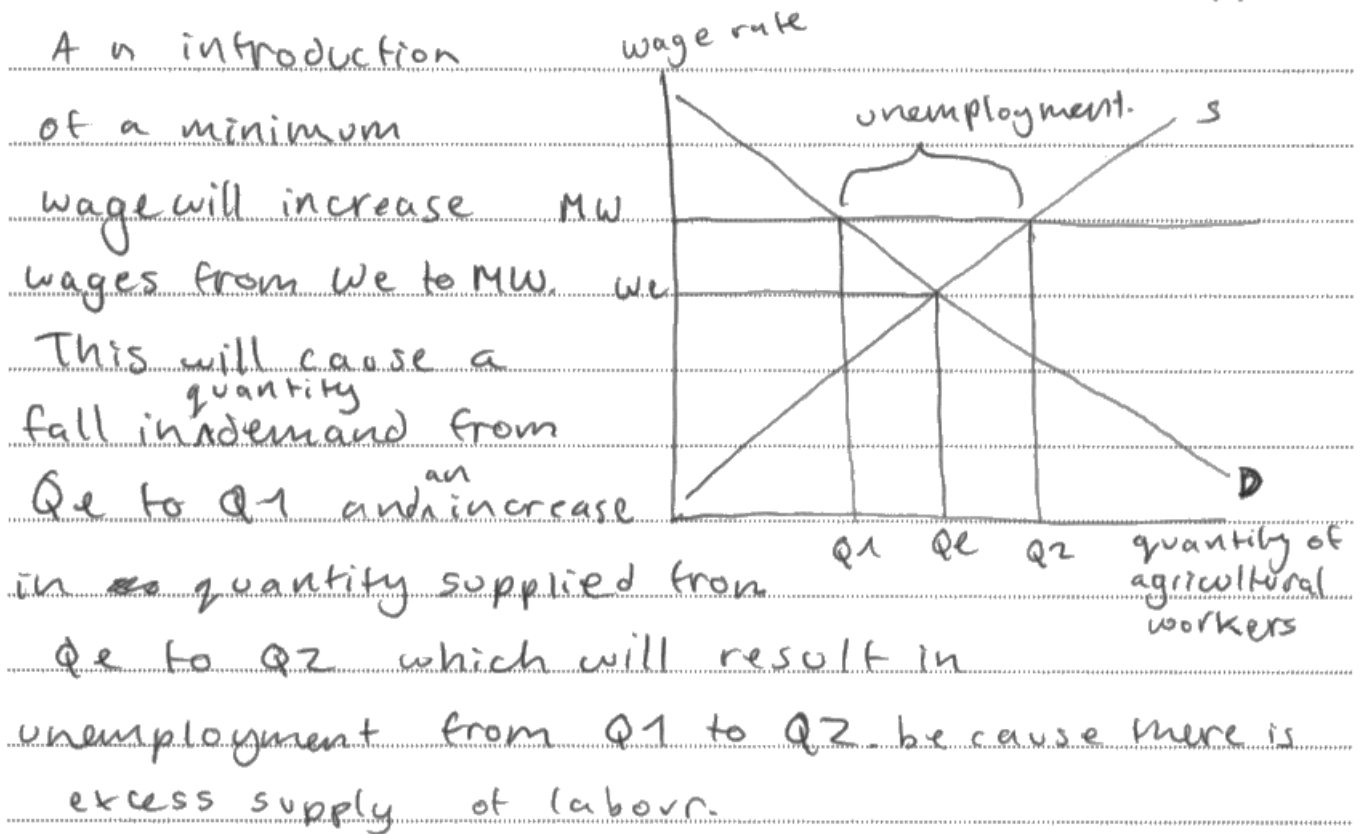 An introduction
of a minimum
wage will increase
wages from We to MW.
This will cause a
fall in quantity demand from
Qe to Q1 and an increase
in quantity supplied from
Qe to Q2 which will result in
unemployment from Q1 to Q2. because there is
excess supply of labour.
wage rate
unemployment.
S
MW
We
D
Q1 Qe Q2
quantity of
agricultural
workers